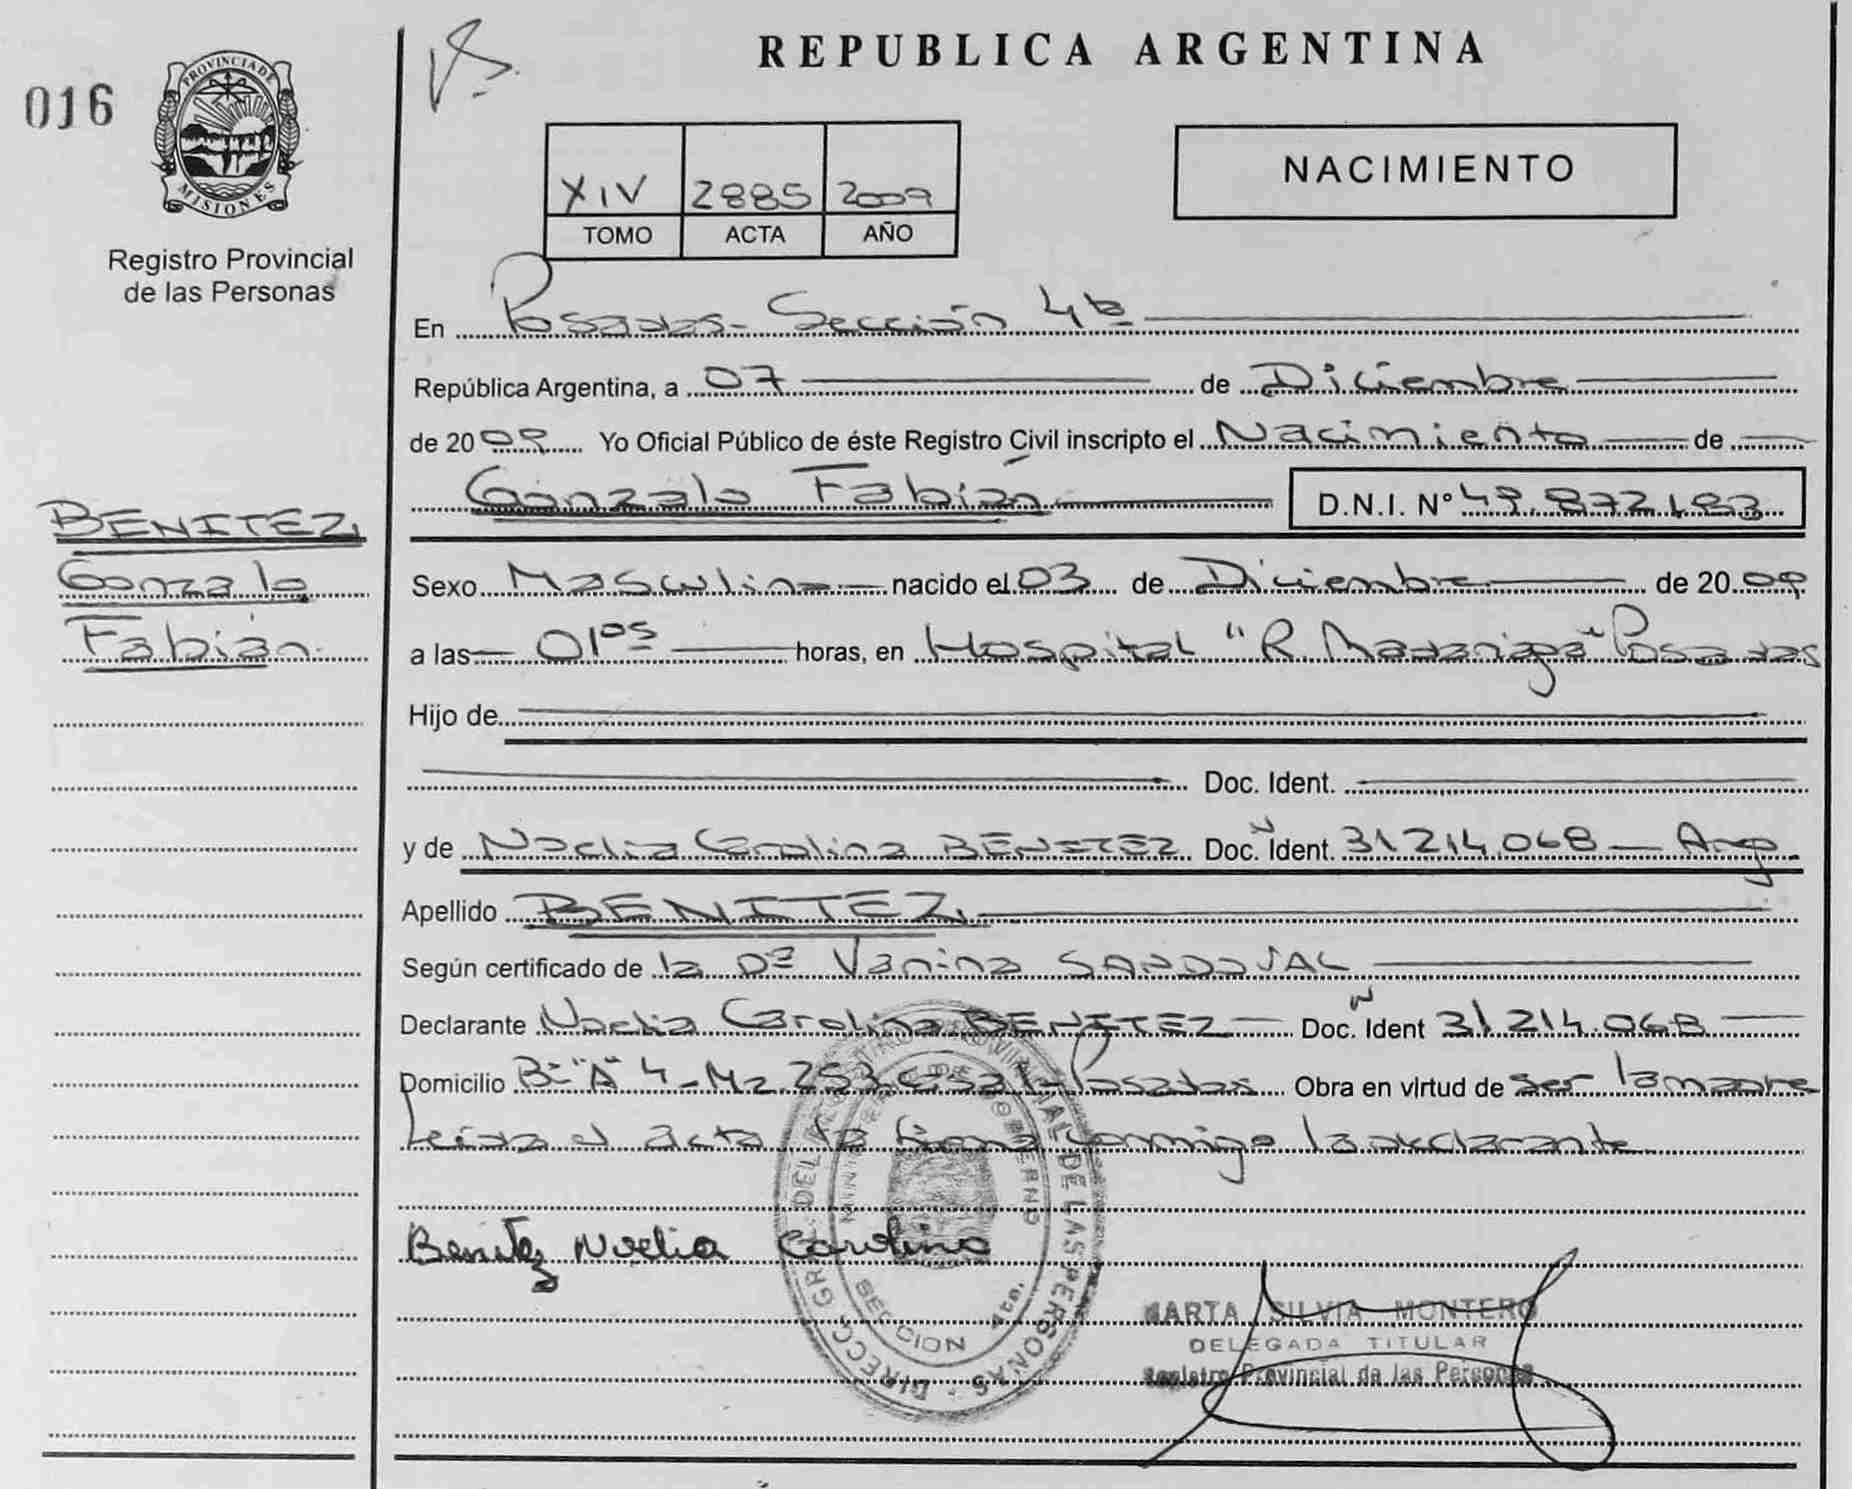 016
PROVINCIA DE
MISIONES
Registro Provincial
de las Personas
REPUBLICA ARGENTINA
XIV 2885 2009
TOMO ACTA AÑO
NACIMIENTO
En Posadas - Sección 4ta
República Argentina, a 07 de Diciembre
de 2009 Yo Oficial Público de éste Registro Civil inscripto el Nacimiento de
Gonzalo Fabián D.N.I. N° 49.872.183
BENITEZ,
Gonzalo
Fabián.
Sexo Masculino nacido el 03 de Diciembre de 2009
a las 01 05 horas, en Hospital "R. Madariaga" Posadas
Hijo de
Doc. Ident.
y de Noelia Carolina BENITEZ Doc. Ident. 31.214.068 - Arg.
Apellido BENITEZ,
Según certificado de la Dª Vanina SANDOVAL
Declarante Noelia Carolina BENITEZ Doc. Ident 31.214.068
Domicilio Bº "A" 4 - Mz 253 casa 1 - Posadas Obra en virtud de ser la madre
Leída el acta la firma conmigo la declarante
Benitez Noelia Carolina
DIRECC. GRAL. DEL REGISTRO PROVINCIAL DE LAS PERSONAS
MINISTERIO DE GOBIERNO
SECCION 4ta.
MARTA SILVIA MONTERO
DELEGADA TITULAR
Registro Provincial de las Personas